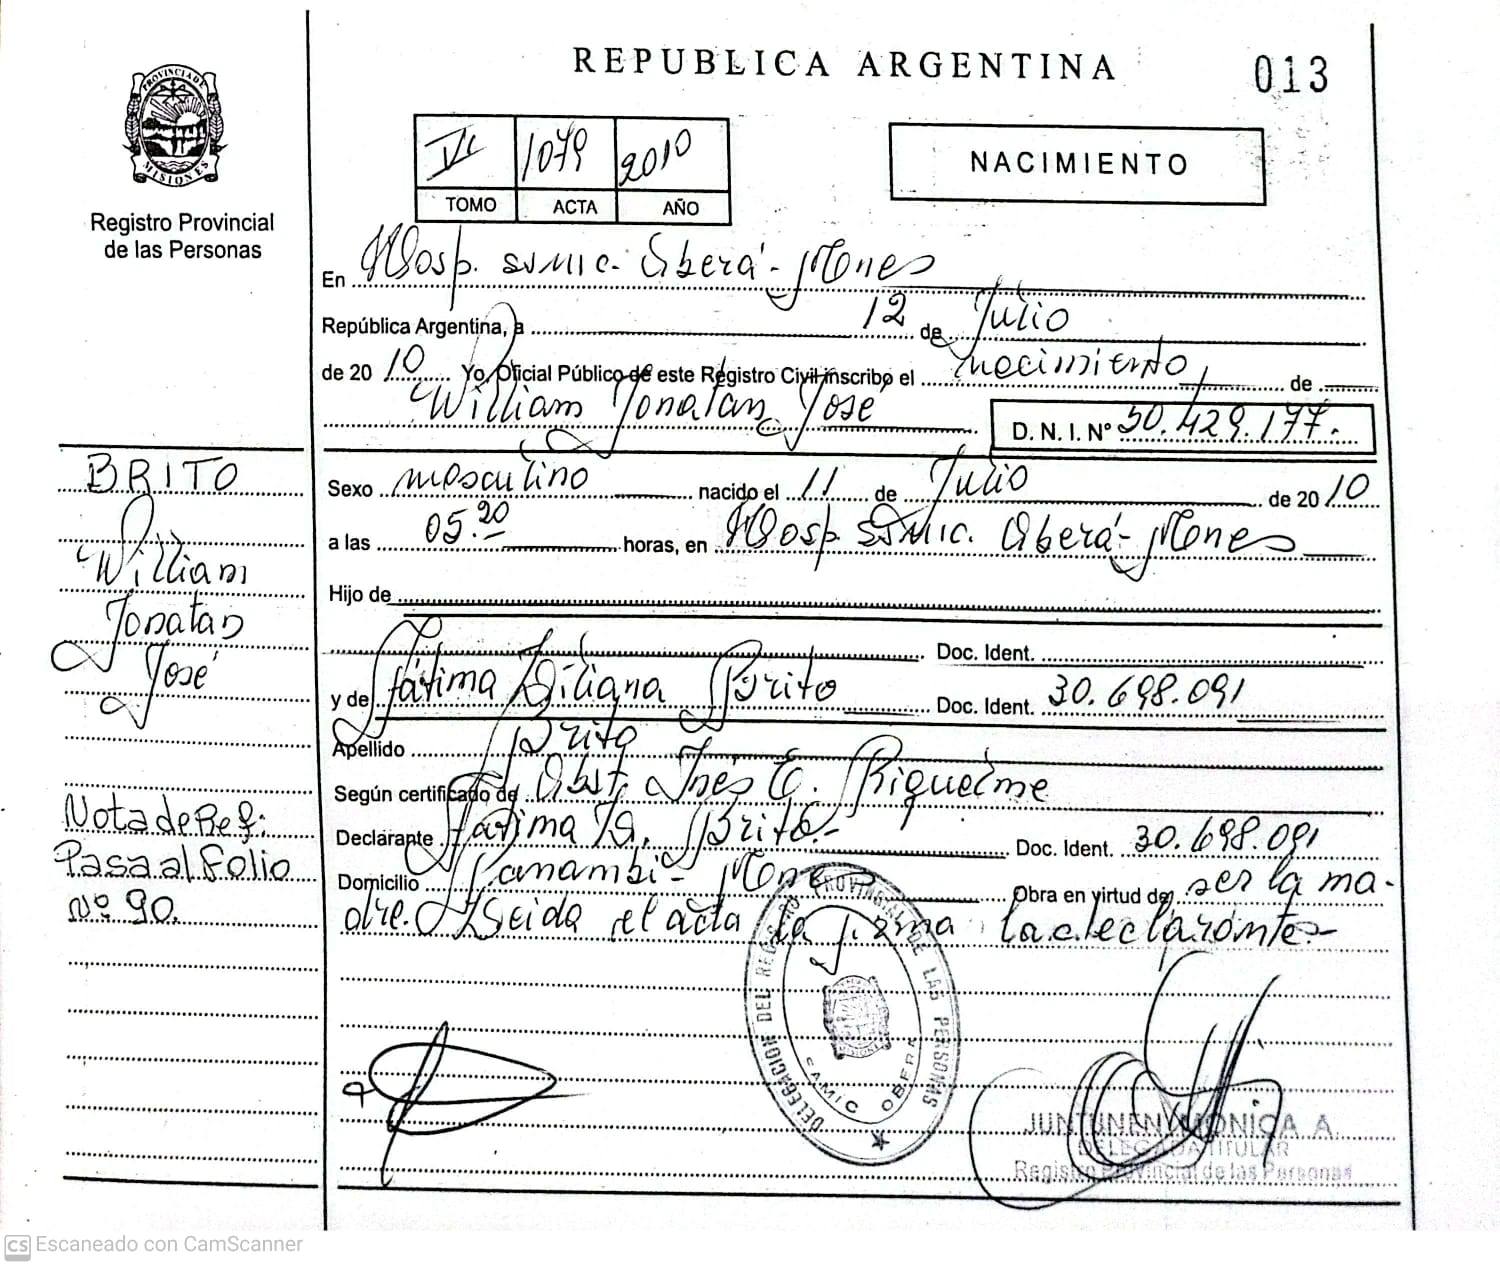 REPUBLICA ARGENTINA
013
PROVINCIA DE
MISIONES
Registro Provincial
de las Personas
VI 1079 2010
TOMO ACTA AÑO
NACIMIENTO
En Hosp. SAMIC. Oberá - Mnes
República Argentina, a 12 de Julio
de 2010 Yo, Oficial Público de este Registro Civil inscribo el nacimiento de
William Jonatan José D. N. I. Nº 50.429.177.
Sexo masculino nacido el 11 de Julio de 2010
a las 05.20 horas, en Hosp SAMIC. Oberá - Mnes
Hijo de
Doc. Ident.
y de Fátima Liliana Brito Doc. Ident. 30.698.091
Apellido Brito
Según certificado de Obst. Inés E. Riquelme
Declarante Fátima L. Brito - Doc. Ident. 30.698.091
Domicilio Panambí - Mnes Obra en virtud de ser la ma-
dre. Leída el acta la firma la declarante -
BRITO
William
Jonatan
José
Nota de Ref:
Pasa al Folio
Nº 90.
DELEGACION DEL REGISTRO PROVINCIAL DE LAS PERSONAS
SAMIC OBERA
MISIONES
JUNTUNEN MONICA A.
DELEGADA TITULAR
Registro Provincial de las Personas
CS Escaneado con CamScanner